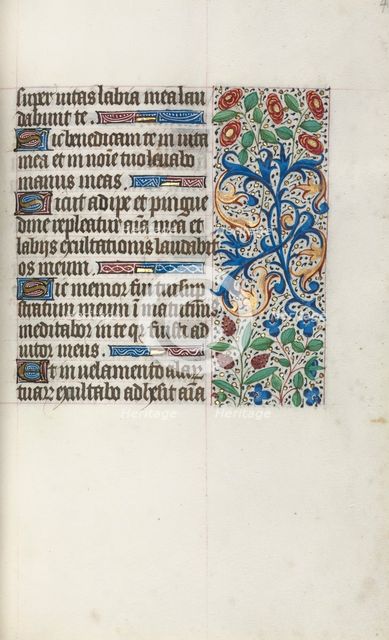 super vitas labia mea lau
dabunt te.
Sic benedicam te in vita
mea et in noīe tuo levabo
manus meas.
Sicut adipe et pingue
dine repleatur aīa mea et
labijs exultationis laudabit
os meum.
Sic memor fui tui sup
stratum meum ī matutinis
meditabor in te qr fuisti ad
iutor meus.
Et in velamento alarz
tuarz exultabo adhesit aīa
heritage
Heritage
4